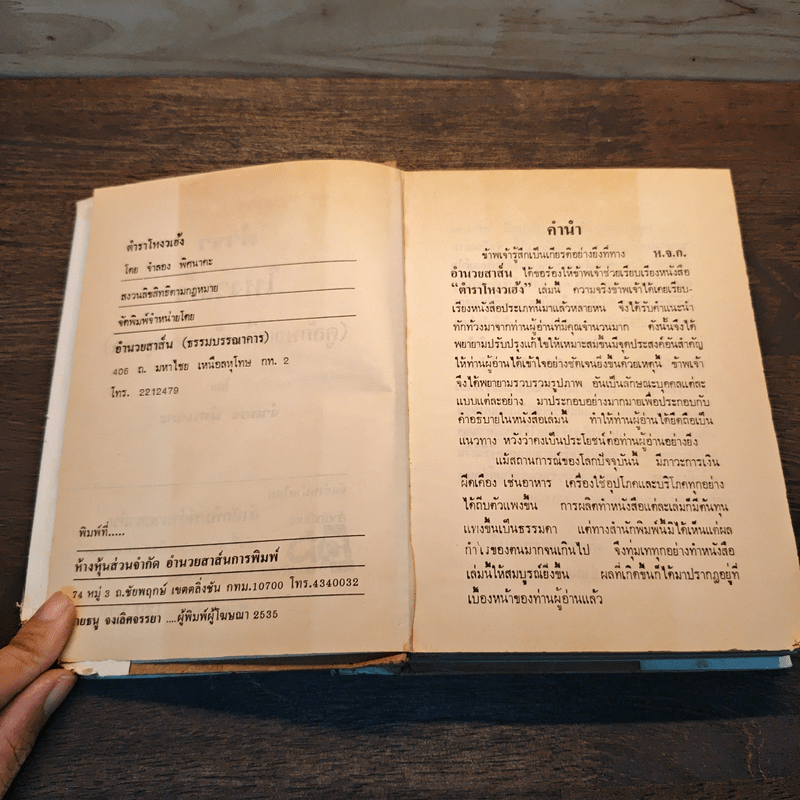 ตำราโหงวเฮ้ง
โดย จำลอง พิศนาคะ
สงวนลิขสิทธิ์ตามกฎหมาย
จัดพิมพ์จำหน่ายโดย
อำนวยสาส์น (ธรรมบรรณาคาร)
406 ถ. มหาไชย เหนือลหุโทษ กท. 2
โทร. 2212479
พิมพ์ที่.....
ห้างหุ้นส่วนจำกัด อำนวยสาส์นการพิมพ์
74 หมู่ 3 ถ.ชัยพฤกษ์ เขตตลิ่งชัน กทม.10700 โทร.4340032
ายธนู จงเลิศจรรยา ....ผู้พิมพ์ผู้โฆษณา 2535
คำนำ
ข้าพเจ้ารู้สึกเป็นเกียรติอย่างยิ่งที่ทาง ห.จ.ก.
อำนวยสาส์น ได้ขอร้องให้ข้าพเจ้าช่วยเรียบเรียงหนังสือ
"ตำราโหงวเฮ้ง" เล่มนี้ ความจริงข้าพเจ้าได้เคยเรียบ-
เรียงหนังสือประเภทนี้มาแล้วหลายหน จึงได้รับคำแนะนำ
ทักท้วงมาจากท่านผู้อ่านที่มีคุณจำนวนมาก ดังนั้นจึงได้
พยายามปรับปรุงแก้ไขให้เหมาะสมขึ้นมีจุดประสงค์อันสำคัญ
ให้ท่านผู้อ่านได้เข้าใจอย่างชัดเจนยิ่งขึ้นด้วยเหตุนี้ ข้าพเจ้า
จึงได้พยายามรวบรวมรูปภาพ อันเป็นลักษณะบุคคลแต่ละ
แบบแต่ละอย่าง มาประกอบอย่างมากมายเพื่อประกอบกับ
คำอธิบายในหนังสือเล่มนี้ ทำให้ท่านผู้อ่านได้ยึดถือเป็น
แนวทาง หวังว่าคงเป็นประโยชน์ต่อท่านผู้อ่านอย่างยิ่ง
แม้สถานการณ์ของโลกปัจจุบันนี้ มีภาวะการเงิน
ฝืดเคือง เช่นอาหาร เครื่องใช้อุปโภคและบริโภคทุกอย่าง
ได้ถีบตัวแพงขึ้น การผลิตทำหนังสือแต่ละเล่มก็มีต้นทุน
แพงขึ้นเป็นธรรมดา แต่ทางสำนักพิมพ์นี้มิได้เห็นแต่ผล
กำไรของตนมากจนเกินไป จึงทุ่มเททุกอย่างทำหนังสือ
เล่มนี้ให้สมบูรณ์ยิ่งขึ้น ผลที่เกิดขึ้นก็ได้มาปรากฏอยู่ที่
เบื้องหน้าของท่านผู้อ่านแล้ว